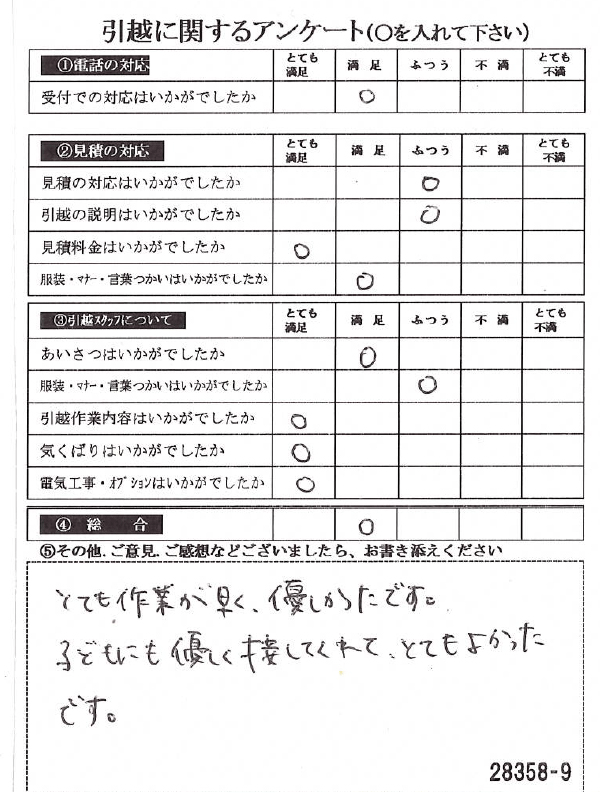 引越に関するアンケート(〇を入れて下さい)
①電話の対応 とても満足 満足 ふつう 不満 とても不満
受付での対応はいかがでしたか ○
②見積の対応 とても満足 満足 ふつう 不満 とても不満
見積の対応はいかがでしたか ○
引越の説明はいかがでしたか ○
見積料金はいかがでしたか ○
服装・マナー・言葉つかいはいかがでしたか ○
③引越スタッフについて とても満足 満足 ふつう 不満 とても不満
あいさつはいかがでしたか ○
服装・マナー・言葉つかいはいかがでしたか ○
引越作業内容はいかがでしたか ○
気くばりはいかがでしたか ○
電気工事・オプションはいかがでしたか ○
④ 総 合 ○
⑤その他.ご意見.ご感想などございましたら、お書き添えください
とても作業が早く、優しかったです。
子どもにも優しく接してくれて、とてもよかった
です。
28358-9